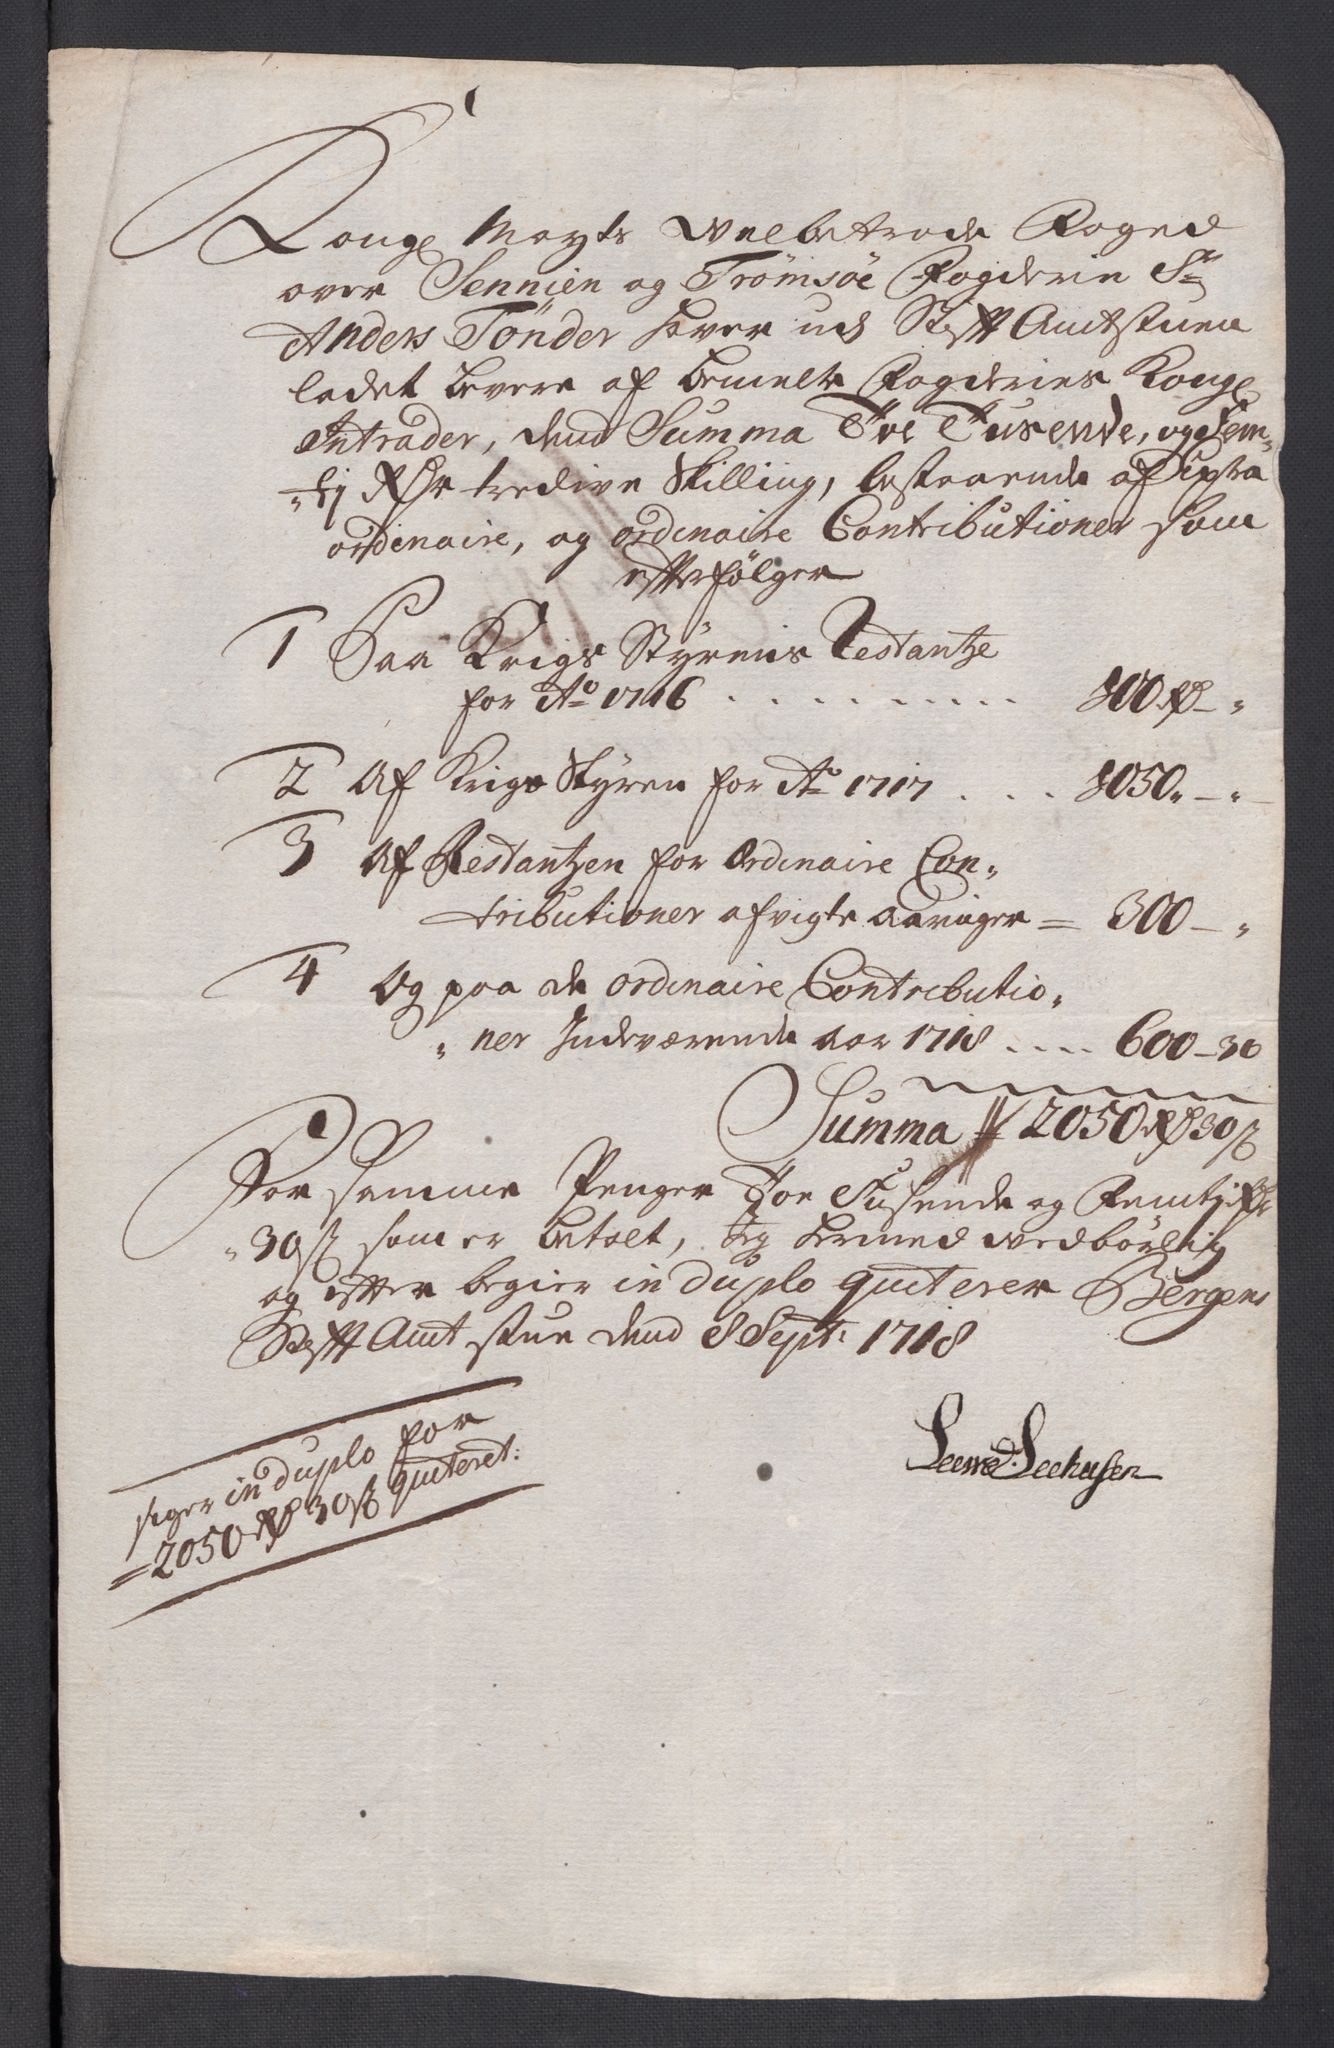 Kongl Mayts Velbetrode Foged
over Sennien og Trömsöe Fogderie Sr
Anders Tönder haver ud Stifft Amtstuen
ladet levere af bemelte Fogderies Kongl
Intrader, dend Summa Toe Tusende, og Fem„
„tj Rdr tredive Skilling, bestaaende af Extra
ordinaire, og ordinaire Contributioner som
efterfölger
1 Paa Krigs Styrens Restantze
for Ao 1716 . . . . . . . . . 100 Rd – „
2 Af Krigs Styren for Ao 1717 . . . 1050„ – „
3 Af Restantzen for Ordinaire Con„
tributioner afvigte Aaringer = 300 – „
4 Og paa de ordinaire Contributio„
„ner Indeværende Aar 1718 .... 600 – 30
Summa 2050 Rd 30 ß
For samme Penger Toe Tusende og Femtj Rdr
„30 ß som er betalt, Jeg hermed vedbörlig
og effter begier in duplo quiterer Bergens
Stifft Amt stue dend 8 Sept: 1718
Seehusen
siger in duplo for
= 2050 Rd 30 ß quiteret: